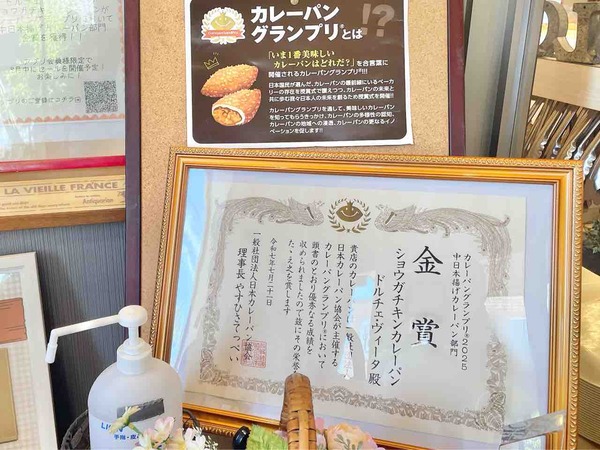 カレーパン
グランプリ®とは
!?
「いま1番美味しい
カレーパンはどれだ？」を合言葉に
開催されるカレーパングランプリ®!!!
日本国民が選んだ、カレーパンの最前線にいるベーカ
リーの存在を授賞式で讃えつつ、カレーパンの未来と
共に歩む我々日本人の未来を創るため授賞式を開催!!
カレーパングランプリを通して、美味しいカレーパン
を知ってもらうきっかけ、カレーパンの多様性の認知、
カレーパンの地域への浸透、カレーパンの更なるイノ
ベーションを促します!!
LA VIEILLE FRANCE
カレーパングランプリ®2025
中日本揚げカレーパン部門
金賞
ショウガチキンカレーパン
ドルチェ・ヴィータ殿
貴店のカレーパンは
日本カレーパン協会が主催する
カレーパングランプリ®において
頭書のとおり優秀なる成績を
収められましたので茲にその栄誉を
たゝえ之を賞します
令和七年七月二十一日
一般社団法人日本カレーパン協会
理事長 やすひさてっぺい